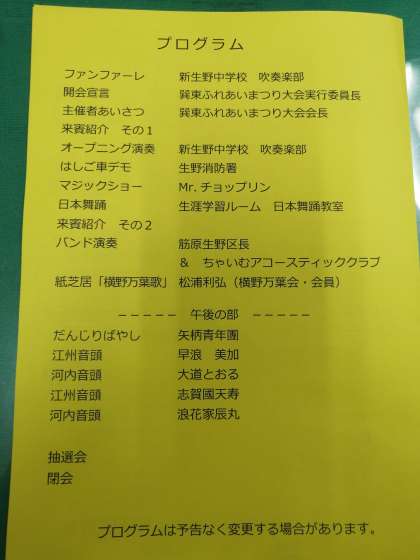 プログラム
ファンファーレ　新生野中学校　吹奏楽部
開会宣言　巽東ふれあいまつり大会実行委員長
主催者あいさつ　巽東ふれあいまつり大会会長
来賓紹介　その１
オープニング演奏　新生野中学校　吹奏楽部
はしご車デモ　生野消防署
マジックショー　Mr. チョップリン
日本舞踊　生涯学習ルーム　日本舞踊教室
来賓紹介　その２
バンド演奏　筋原生野区長
＆　ちゃいむアコースティッククラブ
紙芝居「横野万葉歌」松浦利弘（横野万葉会・会員）
－－－－－　午後の部　－－－－－
だんじりばやし　矢柄青年團
江州音頭　早浪　美加
河内音頭　大道とおる
江州音頭　志賀國天寿
河内音頭　浪花家辰丸
抽選会
閉会
プログラムは予告なく変更する場合があります。